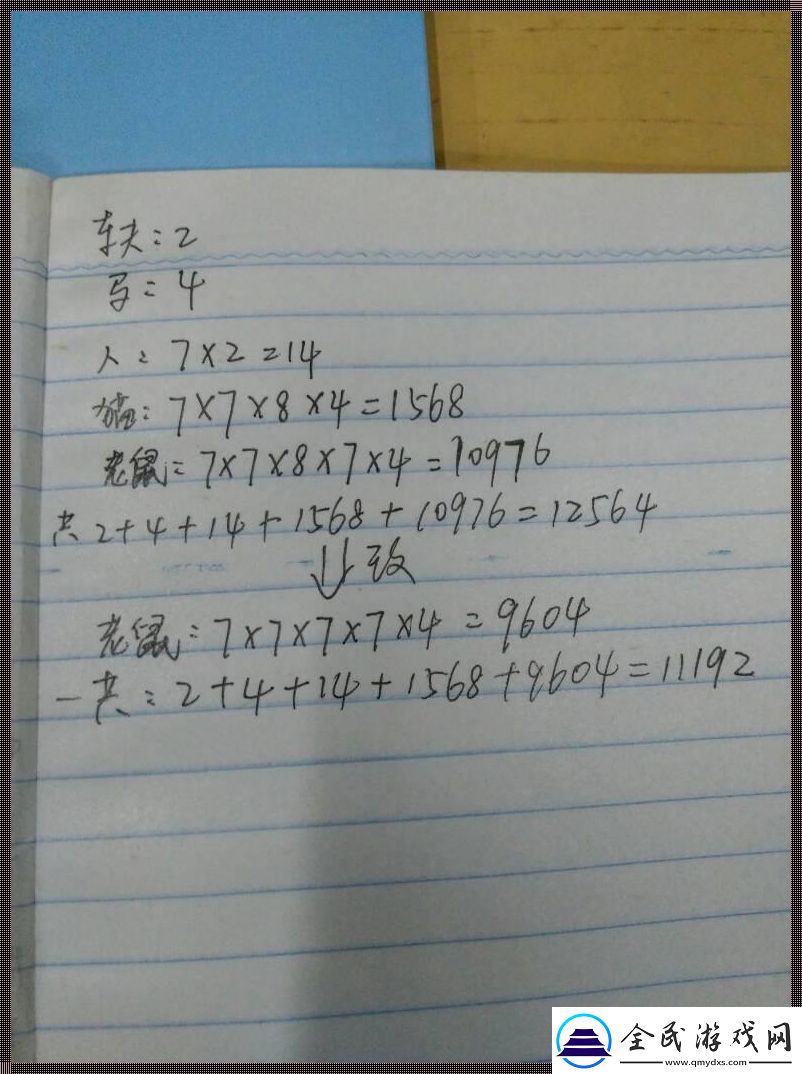 车夫:2
马:4
人:7×2=14
猫:7×7×8×4=1568
老鼠:7×7×8×7×4=10976
共 2+4+14+1568+10976=12564
↓改
老鼠:7×7×7×7×4=9604
一共:2+4+14+1568+9604=11192
全民游戏网
www.qmydxs.com